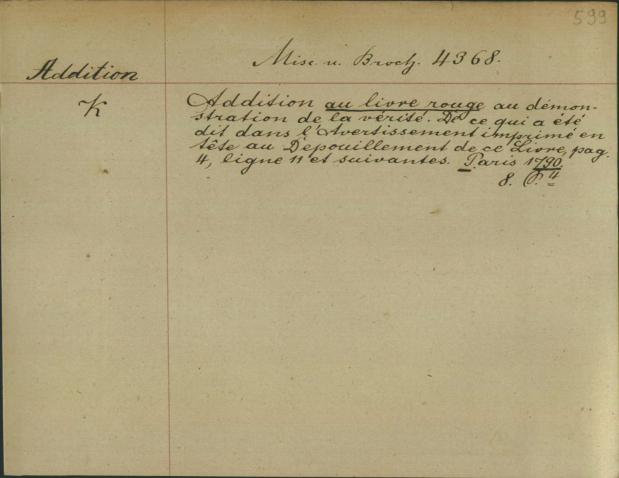 599
Misc. u. Broch. 4368.
Addition
K
Addition au livre rouge au démon-
stration de la vérité. De ce qui a été
dit dans l'Avertissement imprimé en
tête au Depouillement de ce Livre, pag.
4, ligne 11 et suivantes. Paris 1790.
8. P. 4